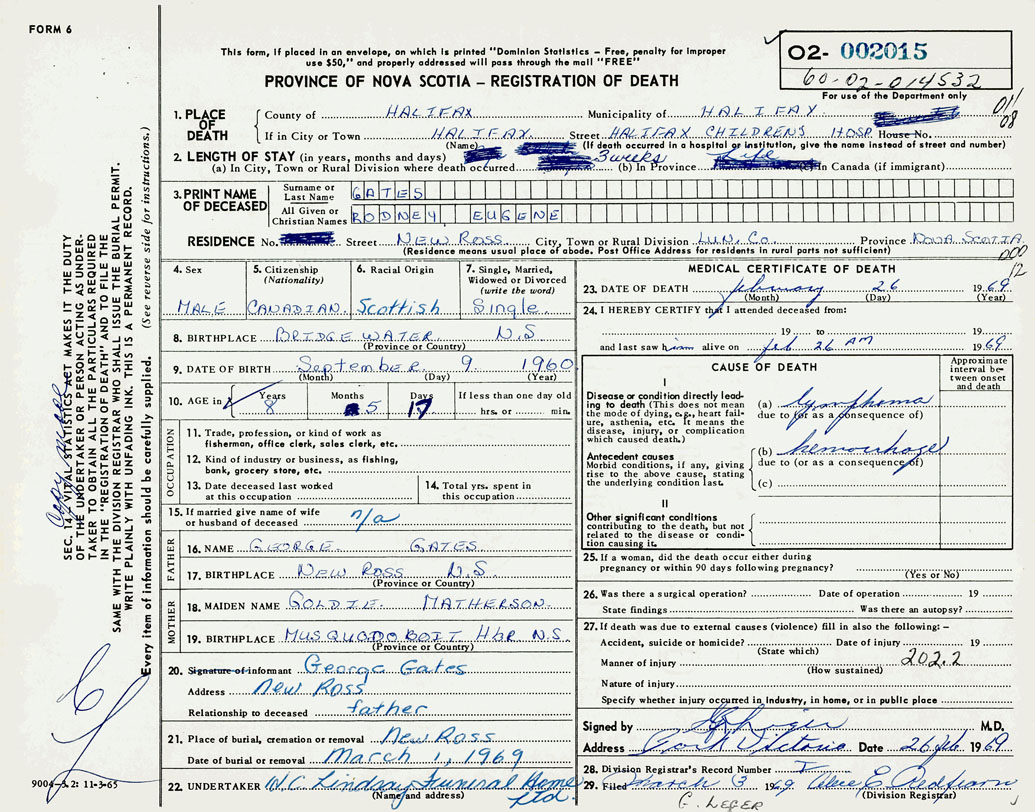 FORM 6
This form, if placed in an envelope, on which is printed "Dominion Statistics – Free, penalty for improper
use $50," and properly addressed will pass through the mail "FREE"
PROVINCE OF NOVA SCOTIA – REGISTRATION OF DEATH
O2- 002015
60-02-014532
For use of the Department only
011
08
1. PLACE OF DEATH
County of HALIFAX Municipality of HALIFAX
If in City or Town HALIFAX Street HALIFAX CHILDRENS HOSP House No.
(Name) (If death occurred in a hospital or institution, give the name instead of street and number)
2. LENGTH OF STAY (in years, months and days) 3 weeks Life
(a) In City, Town or Rural Division where death occurred (b) In Province (c) In Canada (if immigrant)
3. PRINT NAME OF DECEASED
Surname or Last Name GATES
All Given or Christian Names RODNEY EUGENE
RESIDENCE No. Street NEW ROSS City, Town or Rural Division LUN. CO. Province NOVA SCOTIA
(Residence means usual place of abode. Post Office Address for residents in rural parts not sufficient)
000
12
4. Sex
MALE
5. Citizenship (Nationality)
CANADIAN.
6. Racial Origin
Scottish
7. Single, Married, Widowed or Divorced (write the word)
Single.
8. BIRTHPLACE BRIDGEWATER N.S
(Province or Country)
9. DATE OF BIRTH SEPTEMBER 9 1960
(Month) (Day) (Year)
10. AGE in Years 8 Months 5 Days 17 If less than one day old
hrs. or min.
OCCUPATION
11. Trade, profession, or kind of work as
fisherman, office clerk, sales clerk, etc.
12. Kind of industry or business, as fishing,
bank, grocery store, etc.
13. Date deceased last worked
at this occupation
14. Total yrs. spent in
this occupation
15. If married give name of wife
or husband of deceased n/a
FATHER
16. NAME GEORGE. GATES
17. BIRTHPLACE NEW ROSS N.S.
(Province or Country)
MOTHER
18. MAIDEN NAME GOLDIE. MATHERSON.
19. BIRTHPLACE MUSQUODOBOIT Hbr N.S.
(Province or Country)
20. Signature of informant George Gates
Address New Ross
Relationship to deceased father
21. Place of burial, cremation or removal New Ross
Date of burial or removal March 1, 1969
22. UNDERTAKER W.C. Lindsay Funeral Home Ltd.
(Name and address)
MEDICAL CERTIFICATE OF DEATH
23. DATE OF DEATH February 26 1969
(Month) (Day) (Year)
24. I HEREBY CERTIFY that I attended deceased from:
19 to 19
and last saw him alive on Feb 26 AM 1969
CAUSE OF DEATH
Approximate interval between onset and death
I
Disease or condition directly leading
to death (This does not mean
the mode of dying, e.g., heart failure,
asthenia, etc. It means the
disease, injury, or complication
which caused death.)
(a) lymphoma
due to (or as a consequence of)
Antecedent causes
Morbid conditions, if any, giving
rise to the above cause, stating
the underlying condition last.
(b) hemorrhage
due to (or as a consequence of)
(c)
II
Other significant conditions
contributing to the death, but not
related to the disease or condition
causing it.
25. If a woman, did the death occur either during
pregnancy or within 90 days following pregnancy?
(Yes or No)
26. Was there a surgical operation? Date of operation 19
State findings Was there an autopsy?
27. If death was due to external causes (violence) fill in also the following: –
Accident, suicide or homicide? Date of injury 19
(State which)
Manner of injury 202.2
(How sustained)
Nature of injury
Specify whether injury occurred in industry, in home, or in public place
Signed by M.D.
Address Date 26 Feb 1969
28. Division Registrar's Record Number
29. Filed March 3 1969
(Division Registrar)
G. LEGER
SEC. 14 - VITAL STATISTICS ACT MAKES IT THE DUTY
OF THE UNDERTAKER OR PERSON ACTING AS UNDERTAKER
TO OBTAIN ALL THE PARTICULARS REQUIRED
IN THE "REGISTRATION OF DEATH" AND TO FILE THE
SAME WITH THE DIVISION REGISTRAR WHO SHALL ISSUE THE BURIAL PERMIT.
WRITE PLAINLY WITH UNFADING INK. THIS IS A PERMANENT RECORD.
Every item of information should be carefully supplied. (See reverse side for instructions.)
11-3-65